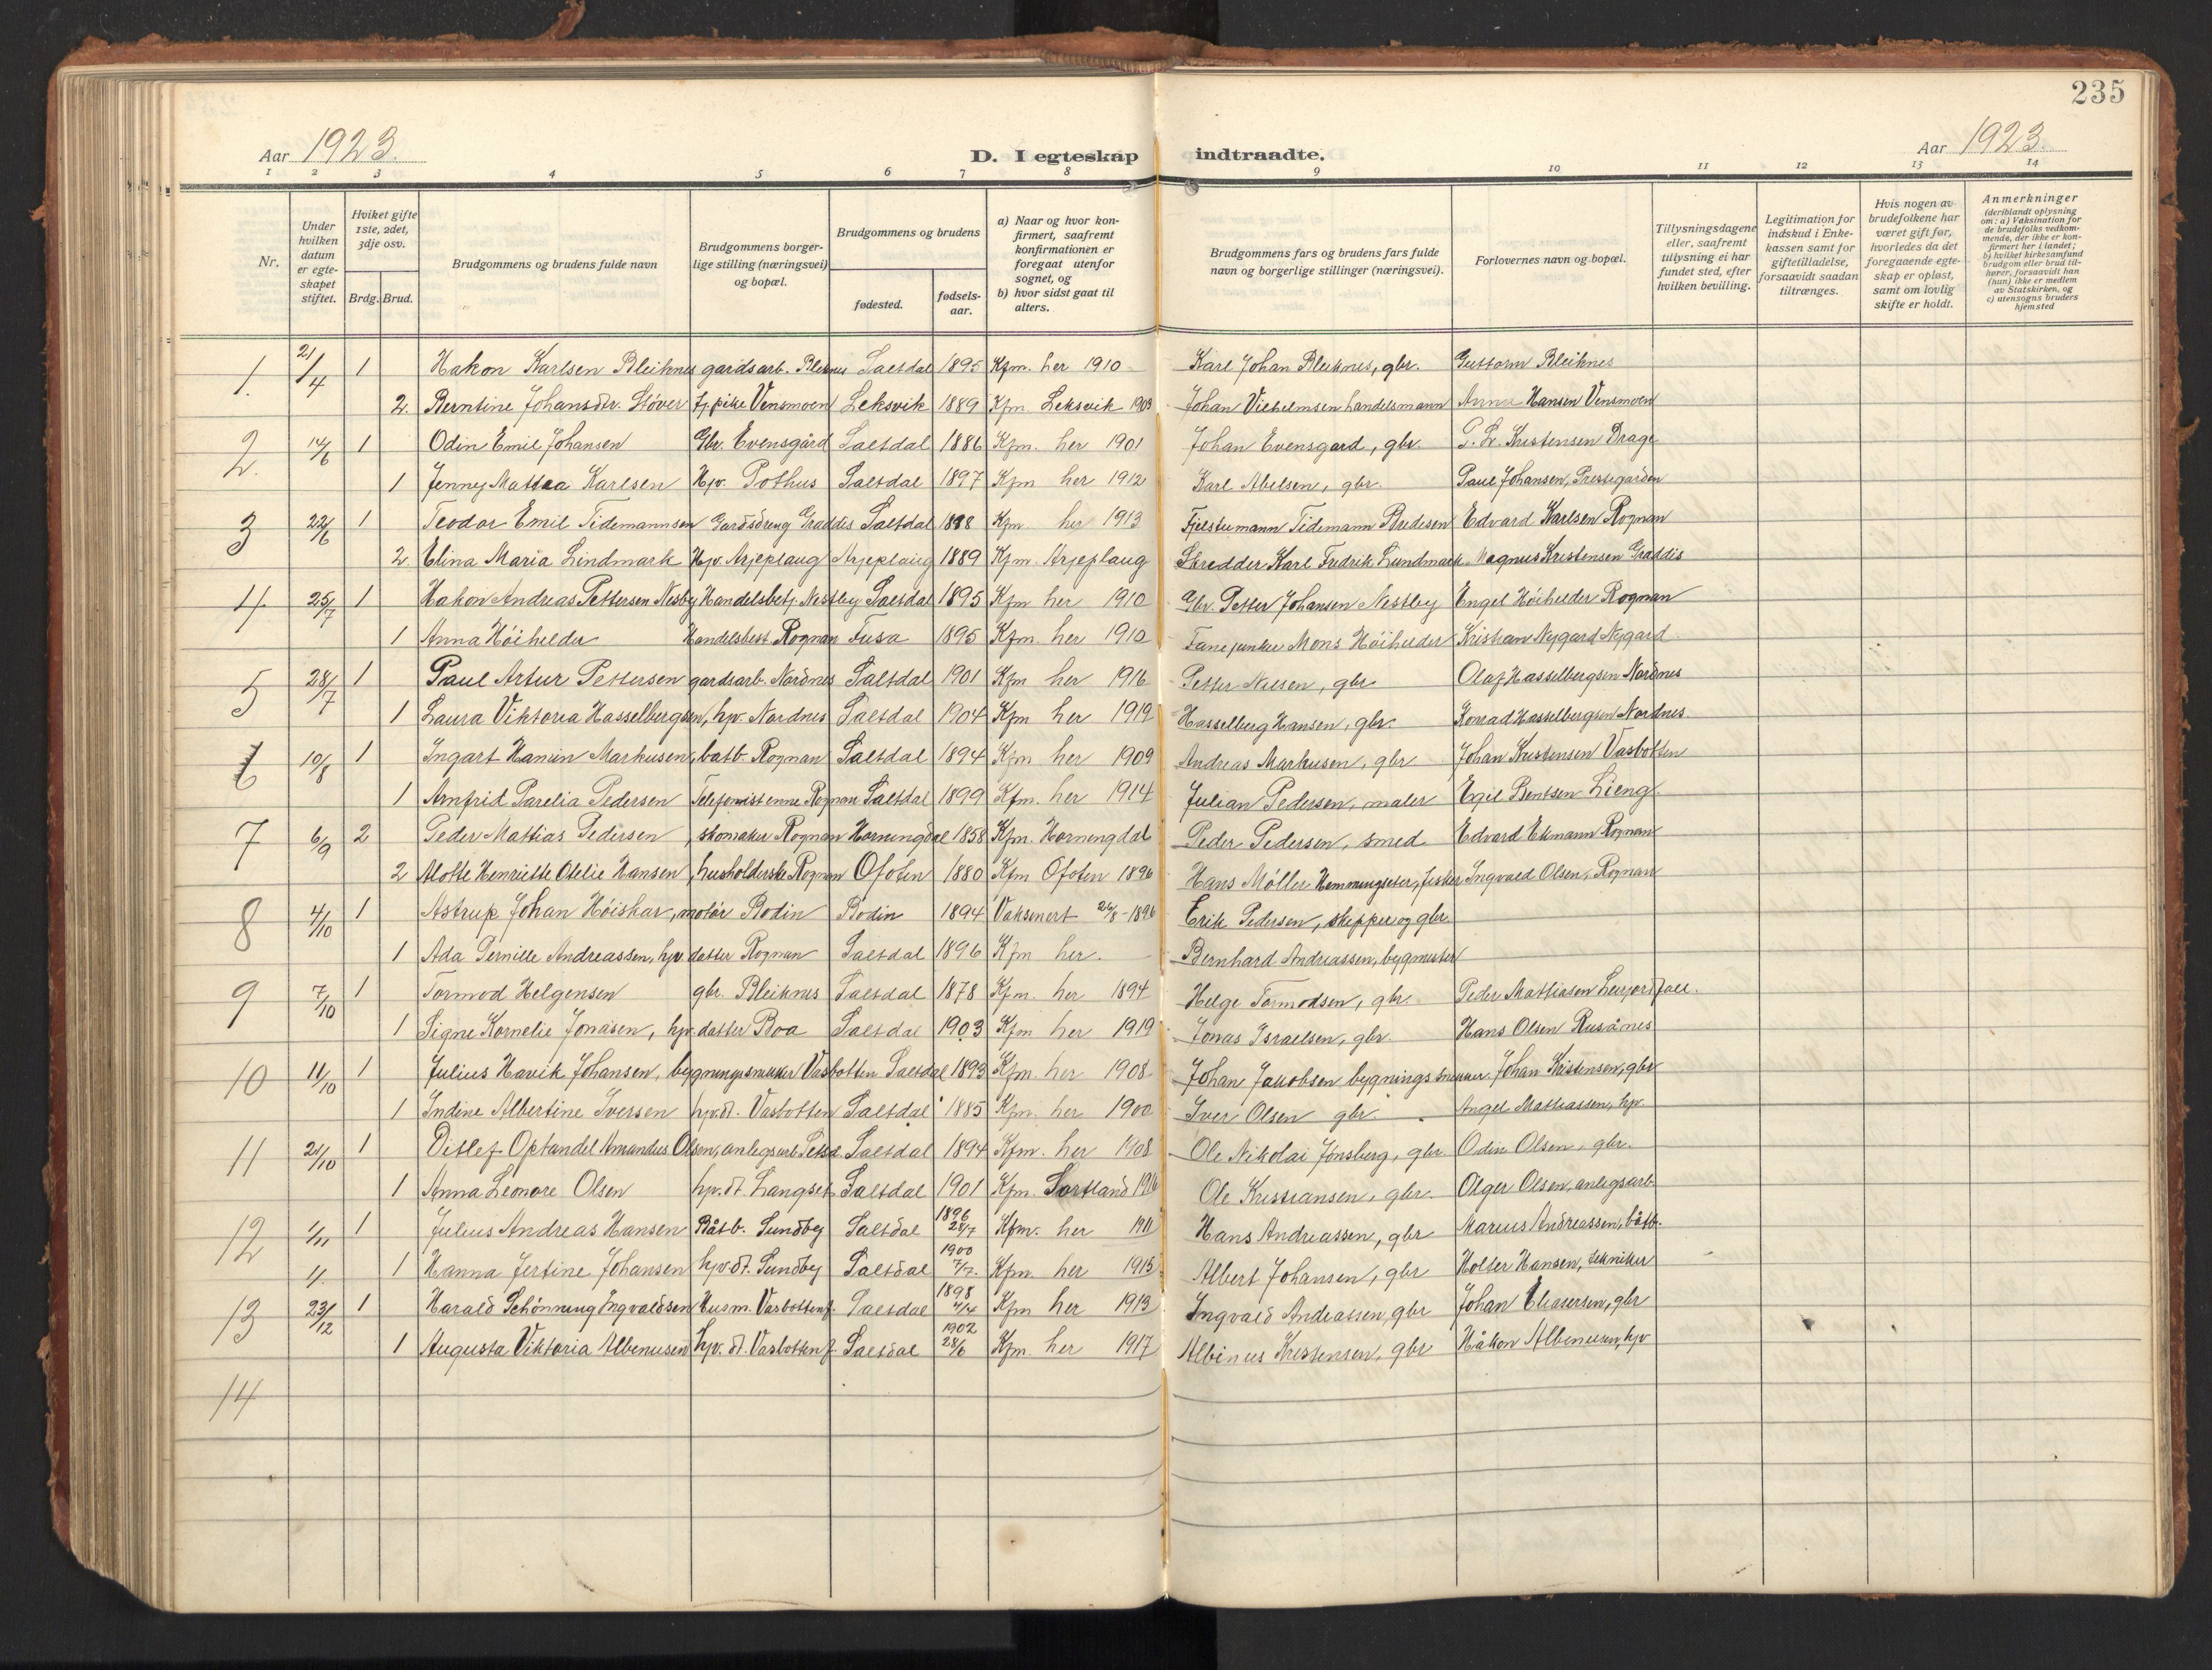 235
Aar 1923.
D. I egteskap indtraadte.
Aar 1923.
1 2 3 4 5 6 7 8 9 10 11 12 13 14
Nr.
Under hvilken datum er egteskapet stiftet.
Hviket gifte 1ste, 2det, 3dje osv.
Brdg. Brud.
Brudgommens og brudens fulde navn
Brudgommens borgerlige stilling (næringsvei) og bopæl.
Brudgommens og brudens
fødested.
fødselsaar.
a) Naar og hvor konfirmert, saafremt konfirmationen er foregaat utenfor sognet, og
b) hvor sidst gaat til alters.
Brudgommens fars og brudens fars fulde navn og borgerlige stillinger (næringsvei).
Forlovernes navn og bopæl.
Tillysningsdagene eller, saafremt tillysning ei har fundet sted, efter hvilken bevilling.
Legitimation for indskud i Enkekassen samt for giftetilladelse, forsaavidt saadan tiltrænges.
Hvis nogen av brudefolkene har været gift før, hvorledes da det foregaaende egteskap er opløst, samt om lovlig skifte er holdt.
Anmerkninger (deriblandt oplysning om: a) Vaksination for de brudefolks vedkommende, der ikke er konfirmert her i landet; b) hvilket kirkesamfund brudgom eller brud tilhører, forsaavidt han (hun) ikke er medlem av Statskirken, og c) utensogns bruders hjemsted
1. 21/4 1 Hakon Karlsen Bleiknes gardsarb. Bleknes Saltdal 1895 Kfm. her 1910 Karl Johan Bleiknes, gbr. Guttorm Bleiknes
2. Berntine Johansdtr. Støver tj. pike Vensmoen Leksvik 1889 Kfm. Leksvik 1903 Johan Vilhelmsen handelsmann Anna Hansen Vensmoen
2. 14/6 1 Odin Emil Johansen Gbr. Evensgård Saltdal 1886 Kfm. her 1901 Johan Evensgard, gbr. P. Kristensen Drage
1 Jenny Mattea Karlsen Hjv. Pothus Saltdal 1897 Kfm her 1912 Karl Abelsen, gbr. Paul Johansen, Prestegården
3 22/6 1 Teodor Emil Tidemannsen Gardsdreng Graddis Saltdal 1898 Kfm her 1913 Fjelstumann Tidemann Bredesen Edvard Karlsen Rognan
2. Elina Maria Lindmark Hjv. Arjeplaug Arjeplaug 1889 Kfm. Arjeplaug Skredder Karl Fredrik Lundmark Magnus Kristensen Graddis
4. 25/7 1 Hakon Andreas Pettersen Nesby Handelsbetj. Nestby Saltdal 1895 Kfm her 1910 Gbr. Petter Johansen Nestby Engel Höihelder Rognan
1 Anna Höihelder Handelsbest Rognan Fusa 1895 Kfm. her 1910 Fanejunker Mons Höihelder Kristian Nygard Nygard
5 28/7 1 Paul Artur Pettersen gardsarb. Nordnes Saltdal 1901 Kfm her 1916 Petter Nilsen, gbr Olaf Hasselbergsen Nordnes
1 Laura Viktoria Hasselbergsen, hjv. Nordnes Saltdal 1904 Kfm her 1919 Hasselberg Hansen, gbr. Konrad Hasselbergsen Nordnes
6 10/8 1 Ingart Markusen, batb. Rognan Saltdal 1894 Kfm her 1909 Andreas Markusen, gbr Johan Kristensen Vasbotten
1 Arnfrid Parelia Pedersen Telefonistenne Rognan Saltdal 1899 Kfm. her 1914 Julian Pedersen, maler Egil Bentsen Lieng
7 6/9 2 Peder Mattias Pedersen, skomaker Rognan Hornungdal 1858 Kfm. Hornengdal Peder Pedersen, smed Edvard Ekmann Rognan
2 Alotte Henriette Otelie Hansen, husholderske Rognan Ofoten 1880 Kfm Ofoten 1896 Hans Møller Hemmingseter, fisker Ingvald Olsen, Rognan
8 4/10 1 Astrup Johan Höiskar, motör Bodin Bodin 1894 Vaksinert 26/8-1896 Erik Pedersen, skipper og gbr.
1 Ada Pernille Andreassen, hjv. datter Rognan Saltdal 1896 Kfm her. Bernhard Andreassen, bygmester
9 7/10 1 Tormod Helgensen gbr. Bleiknes Saltdal 1878 Kfm. her 1894 Helge Tormodsen, gbr. Peder Mattiasen
1 Signe Kornelie Jonasen, hjv. datter Boa Saltdal 1903 Kfm her 1919 Jonas Israelsen, gbr. Hans Olsen Rusånes
10 11/10 1 Julius Havik Johansen, bygningssnekker Vasbotten Saltdal 1893 Kfm. her 1908 Johan Jakobsen bygnings snekker Johan Kristensen, gbr
1 Indine Albertine Iversen hjv. dt. Vasbotten Saltdal 1885 Kfm. her 1900 Iver Olsen gbr. Angel Mattiassen, hjv.
11 21/10 1 Ditlef Optandel Amandus Olsen, anlegsarb. Saltdal 1894 Kfm. her 1908 Ole Nikolai Jönsberg, gbr. Odin Olsen, gbr.
1 Anna Leonore Olsen hjv. dt. Langset Saltdal 1901 Kfm. Sortland 1916 Ole Kristiansen, gbr. Olger Olsen, anlegsarb.
12 1/11 1 Julius Andreas Hansen Båtb. Sundby Saltdal 1896 28/7 Kfm. her 1911 Hans Andreassen, gbr Marius Andreassen, båtb.
1/. 1 Hanna Jertine Johansen hjv. dt. Sundby Saltdal 1900 7/7. Kfm. her 1915 Albert Johansen, gbr Holter Hansen, tekniker
13 23/12 1 Harald Schönning Ingvaldsen Husm. Vasbottenfj. Saltdal 1898 4/4 Kfm her 1913 Ingvald Andreassen, gbr Johan Eliasersen, gbr
1 Augusta Viktoria Albenusen hjv. dt. Vasbottenfj. Saltdal 1902 28/6 Kfm. her 1917 Albinus Kristensen, gbr Håkon Albenusen, hjv
14